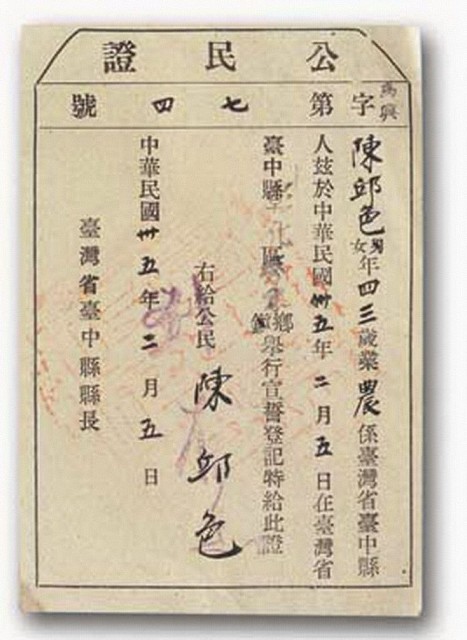 公民證
萬興字第七四號
陳邱色 男女年四三歲業農係臺灣省臺中縣
人茲於中華民國卅五年二月五日在臺灣省
臺中縣 區 鄉鎮舉行宣誓登記特給此證
右給公民陳邱色
中華民國卅五年二月五日
臺灣省臺中縣縣長